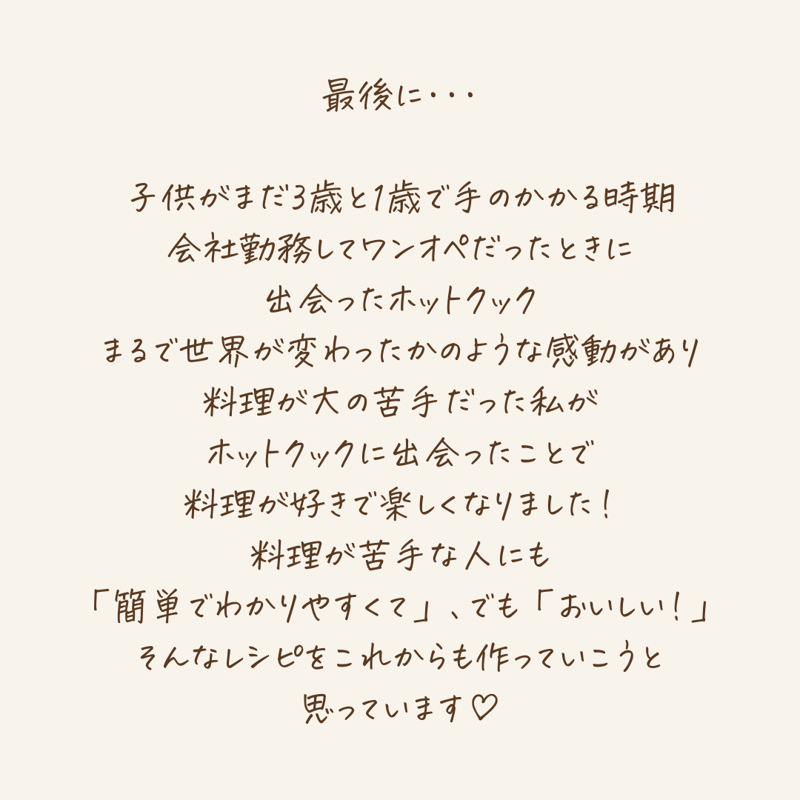 最後に・・・
子供がまだ3歳と1歳で手のかかる時期
会社勤務してワンオペだったときに
出会ったホットクック
まるで世界が変わったかのような感動があり
料理が大の苦手だった私が
ホットクックに出会ったことで
料理が好きで楽しくなりました！
料理が苦手な人にも
「簡単でわかりやすくて」、でも「おいしい！」
そんなレシピをこれからも作っていこうと
思っています♡